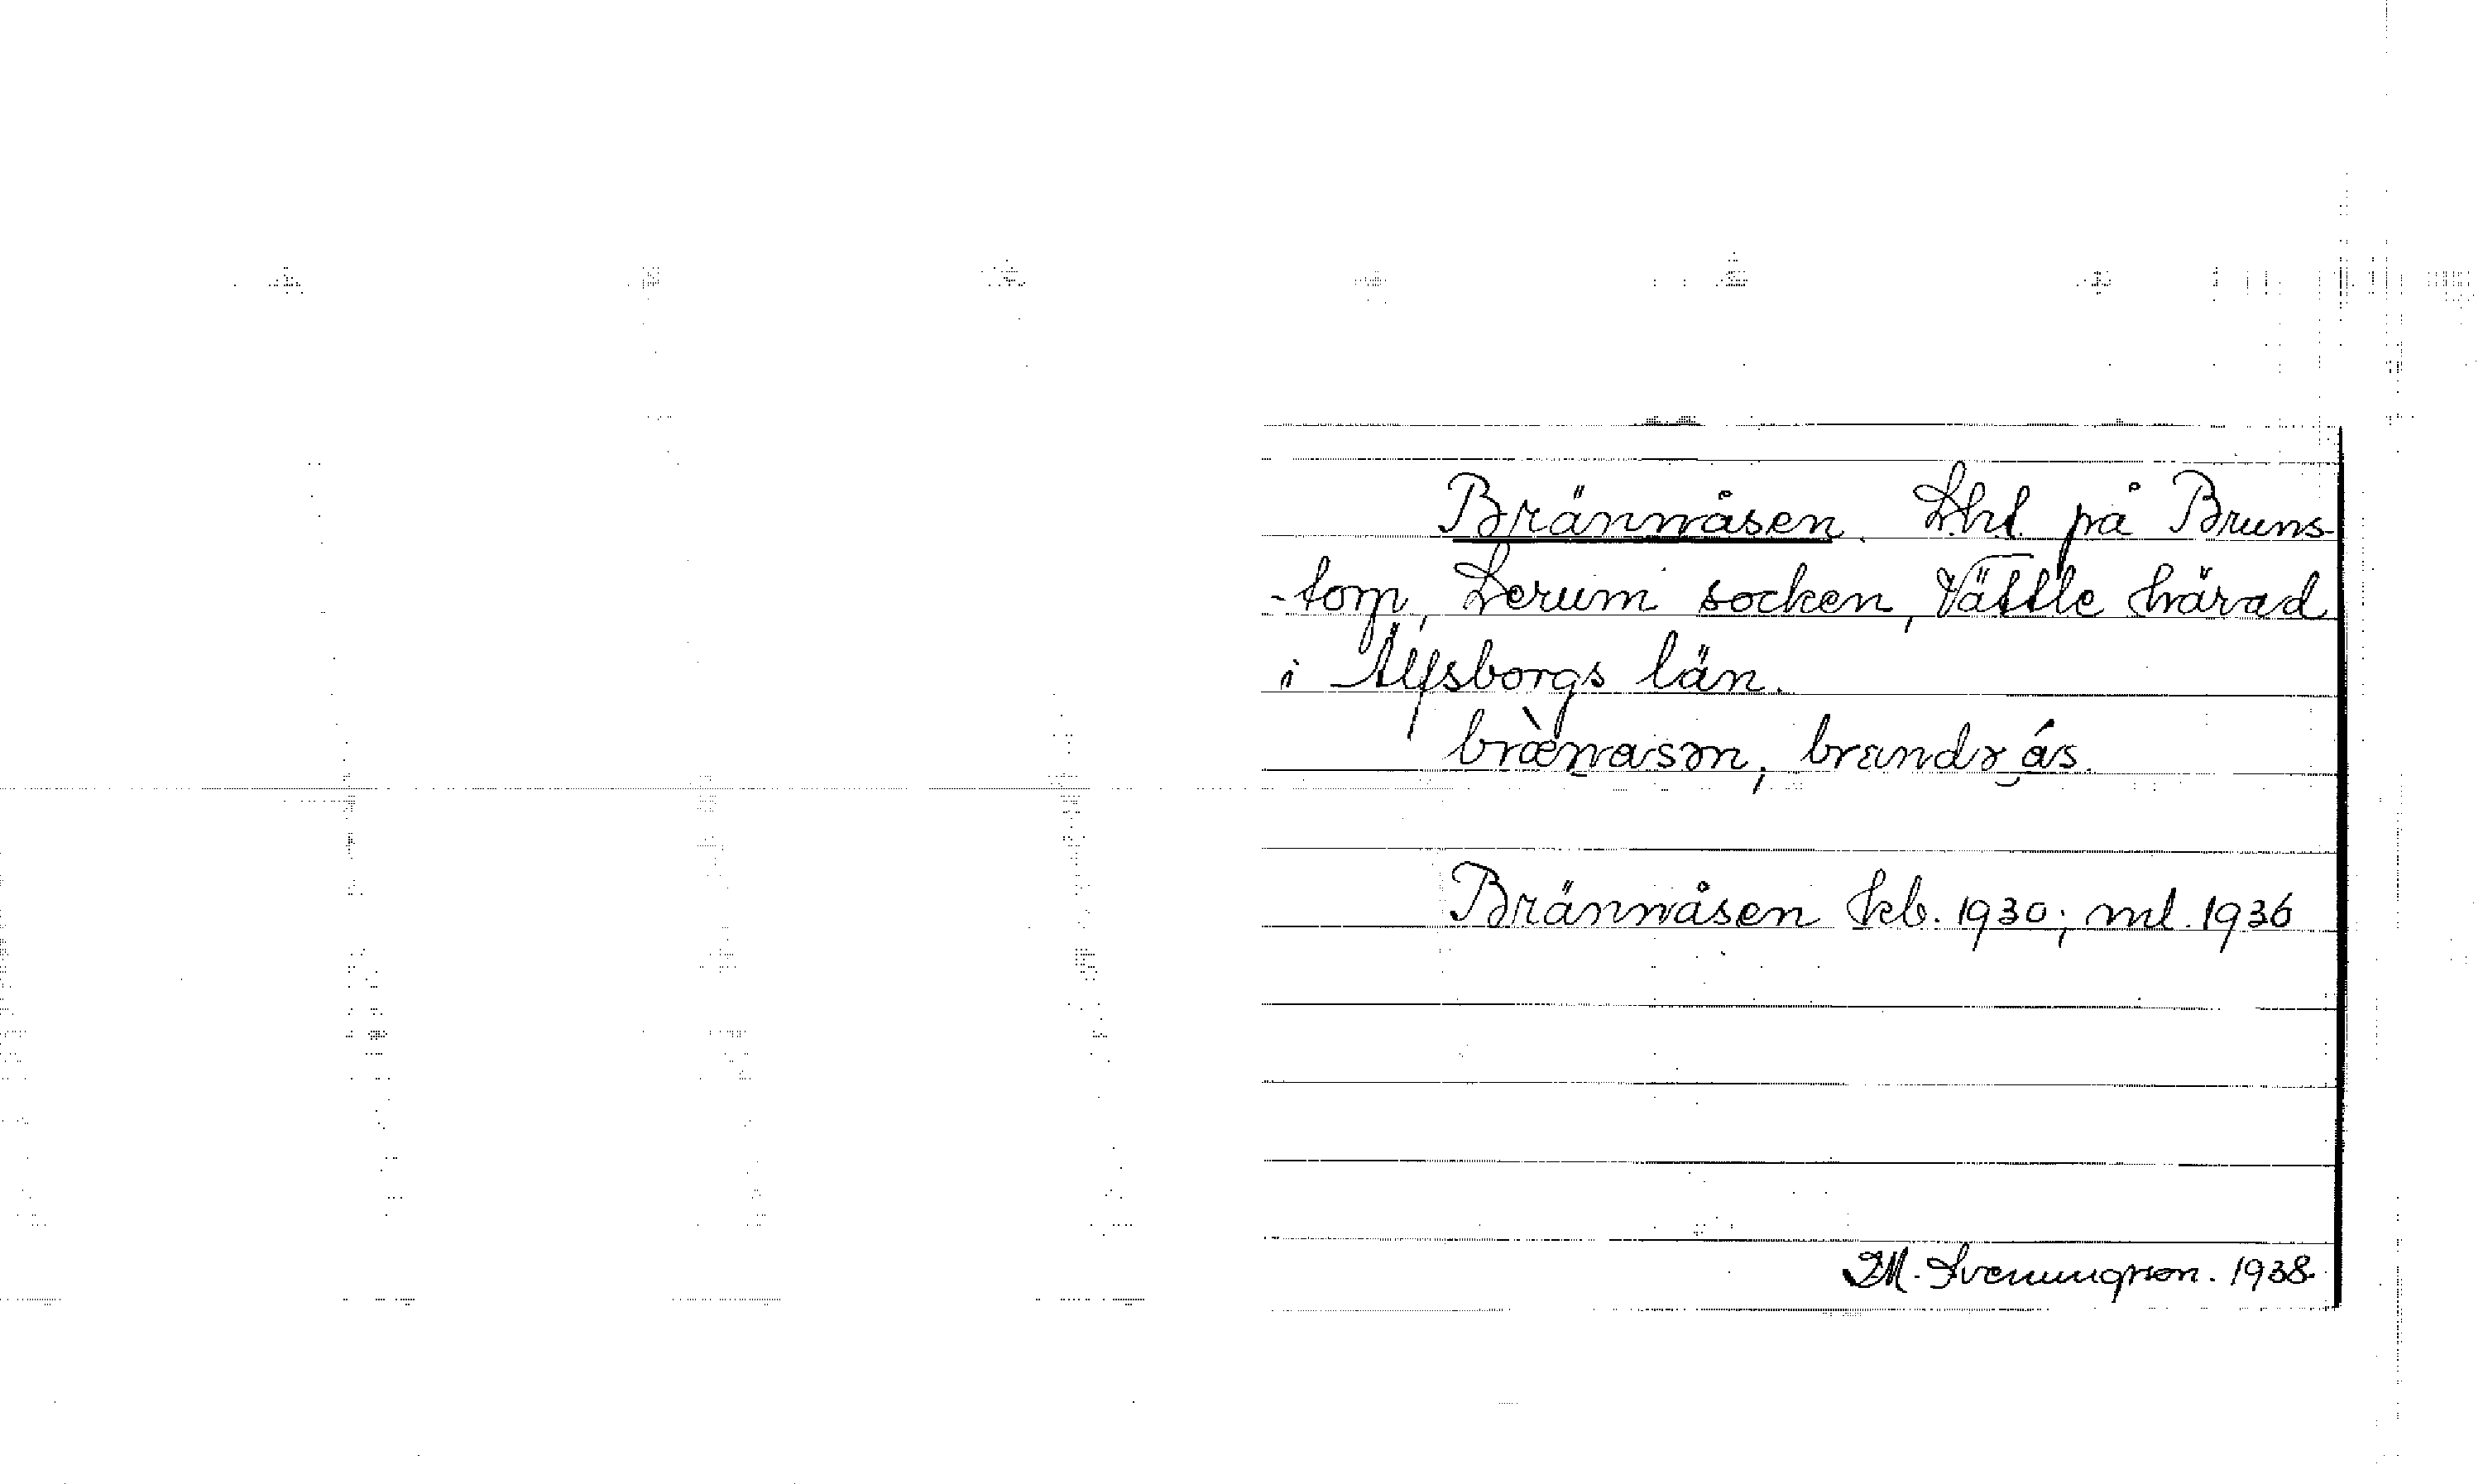 Brännåsen. Lht. på Bruns-
-torp, Lerum socken, Vättle härad
i Älfsborgs län.
bræ̀nasən, brandr ás.
Brännåsen kb. 1930; ml. 1936
M. Svenungson. 1938